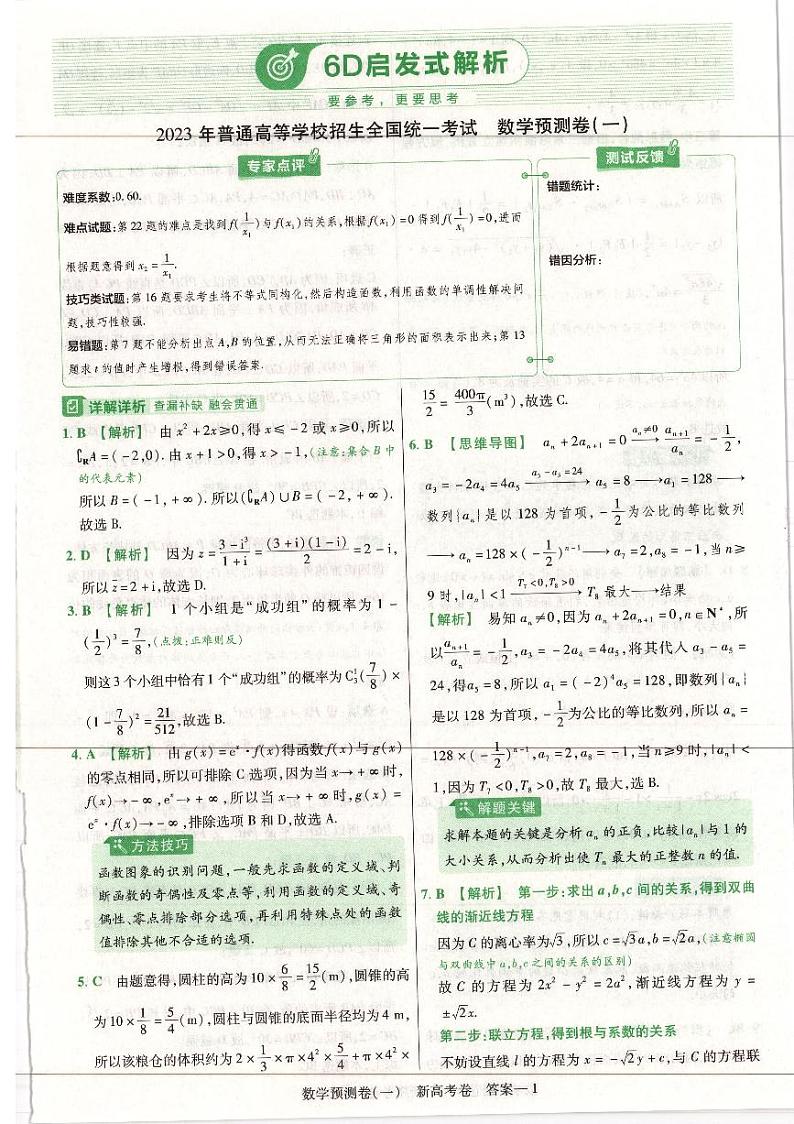 6D启发式解析
要参考，更要思考
2023年普通高等学校招生全国统一考试 数学预测卷(一)
专家点评
难度系数:0.60.
难点试题:第22题的难点是找到f(1/x₁)与f(x₁)的关系,根据f(x₁)=0得到f(1/x₁)=0,进而
根据题意得到x₂=1/x₁.
技巧类试题:第16题要求考生将不等式同构化,然后构造函数,利用函数的单调性解决问
题,技巧性较强.
易错题:第7题不能分析出点A,B的位置,从而无法正确将三角形的面积表示出来;第13
题求t的值时产生增根,得到错误答案.
测试反馈
错题统计:
错因分析:
详解详析 查漏补缺 融会贯通
1. B 【解析】 由x²+2x≥0,得x≤-2或x≥0,所以
∁RA=(-2,0).由x+1>0,得x>-1,(注意:集合B中
的代表元素)
所以B=(-1,+∞).所以(∁RA)∪B=(-2,+∞).
故选B.
2. D 【解析】 因为z=(3-i³)/(1+i)=(3+i)(1-i)/2=2-i,
所以z̄=2+i,故选D.
3. B 【解析】 1个小组是“成功组”的概率为1-
(1/2)³=7/8,(点拨:正难则反)
则这3个小组中恰有1个“成功组”的概率为C₃¹(7/8)×
(1-7/8)²=21/512,故选B.
4. A 【解析】 由g(x)=eˣ·f(x)得函数f(x)与g(x)
的零点相同,所以可排除C选项,因为当x→+∞时,
f(x)→-∞,eˣ→+∞,所以当x→+∞时,g(x)=
eˣ·f(x)→-∞,排除选项B和D,故选A.
方法技巧
函数图象的识别问题,一般先求函数的定义域、判
断函数的奇偶性及零点等,利用函数的定义域、奇
偶性、零点排除部分选项,再利用特殊点处的函数
值排除其他不合适的选项.
5. C 由题意得,圆柱的高为10×6/8=15/2(m),圆锥的高
为10×1/8=5/4(m),圆柱与圆锥的底面半径均为4 m,
所以该粮仓的体积约为2×1/3×π×4²×5/4+π×4²×
15/2=400π/3(m³),故选C.
6. B 【思维导图】 aₙ+2aₙ₊₁=0 —aₙ≠0→ aₙ₊₁/aₙ=-1/2,
a₃=-2a₄=4a₅ —a₃-a₅=24→ a₅=8→a₁=128→
数列{aₙ}是以128为首项,-1/2为公比的等比数列
→aₙ=128×(-1/2)ⁿ⁻¹→a₇=2,a₈=-1,当n≥
9时,|aₙ|<1 —T₇<0,T₈>0→ T₈最大→结果
【解析】 易知aₙ≠0,因为aₙ+2aₙ₊₁=0,n∈N*,所
以aₙ₊₁/aₙ=-1/2,a₃=-2a₄=4a₅,将其代入a₃-a₅=
24,得a₅=8,所以a₁=(-2)⁴a₅=128,即数列{aₙ}
是以128为首项,-1/2为公比的等比数列,所以aₙ=
128×(-1/2)ⁿ⁻¹,a₇=2,a₈=-1,当n≥9时,|aₙ|<
1,因为T₇<0,T₈>0,故T₈最大,选B.
解题关键
求解本题的关键是分析aₙ的正负,比较|aₙ|与1的
大小关系,从而分析出使Tₙ最大的正整数n的值.
7. B 【解析】 第一步:求出a,b,c间的关系,得到双曲
线的渐近线方程
因为C的离心率为√3,所以c=√3a,b=√2a,(注意椭圆
与双曲线中a,b,c之间的关系的区别)
故C的方程为2x²-y²=2a²,渐近线方程为y=
±√2x.
第二步:联立方程,得到根与系数的关系
不妨设直线l的方程为x=-√2y+c,与C的方程联
数学预测卷(一) 新高考卷 答案—1